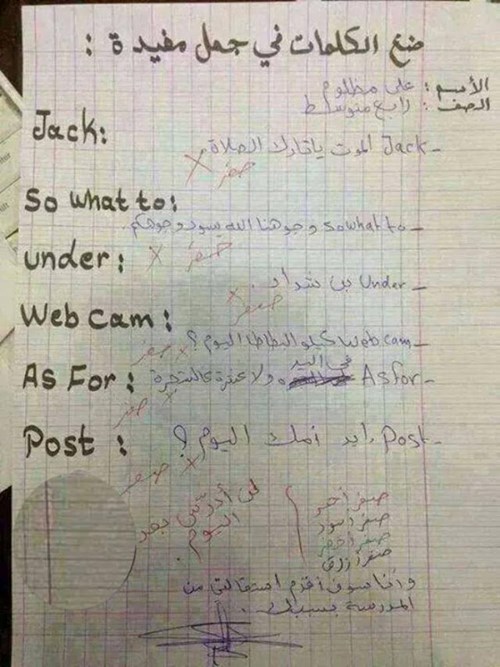 ضع الكلمات في جمل مفيدة :
الأسم : علي مظلوم
الصف : رابع متوسط
Jack:
- Jack الموت ياتارك الصلاة.
× صفر
So what to:
- So what to وجوهنا الله يسود وجوهكم.
× صفر
under :
- Under بن شداد.
× صفر
Web cam :
- Web cam كيلو البطاطا اليوم ؟
× صفر
As For :
- As for في اليد ولا عشرة عالشجرة
× صفر
Post :
- Post رايد أمك اليوم ؟
× صفر
صفر أحمر
صفر أسود
صفر أخضر
صفر أزرق
لن أدرّس بعد
اليوم .
وأنا سوف أقدم استقالتي من
المدرسة بسببك .